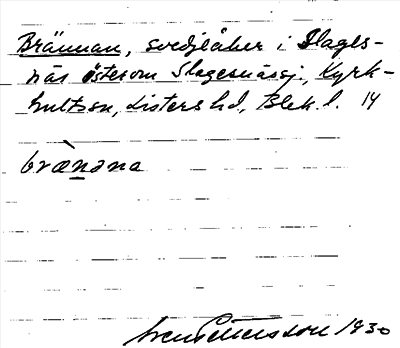 Brännan, svedjeåker i Slages-
näs öster om Slagesnässj., Kyrk-
hults sn, Listers hd, Blek. l. 14
bræ̀nəna
Sven Pettersson 1930